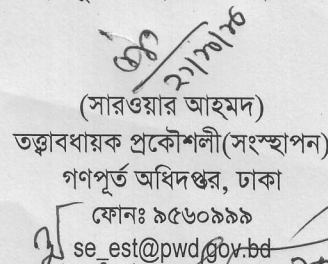 (সারওয়ার আহমদ)
তত্ত্বাবধায়ক প্রকৌশলী(সংস্থাপন)
গণপূর্ত অধিদপ্তর, ঢাকা
ফোনঃ ৯৫৬০৯৯৯
se_est@pwd.gov.bd